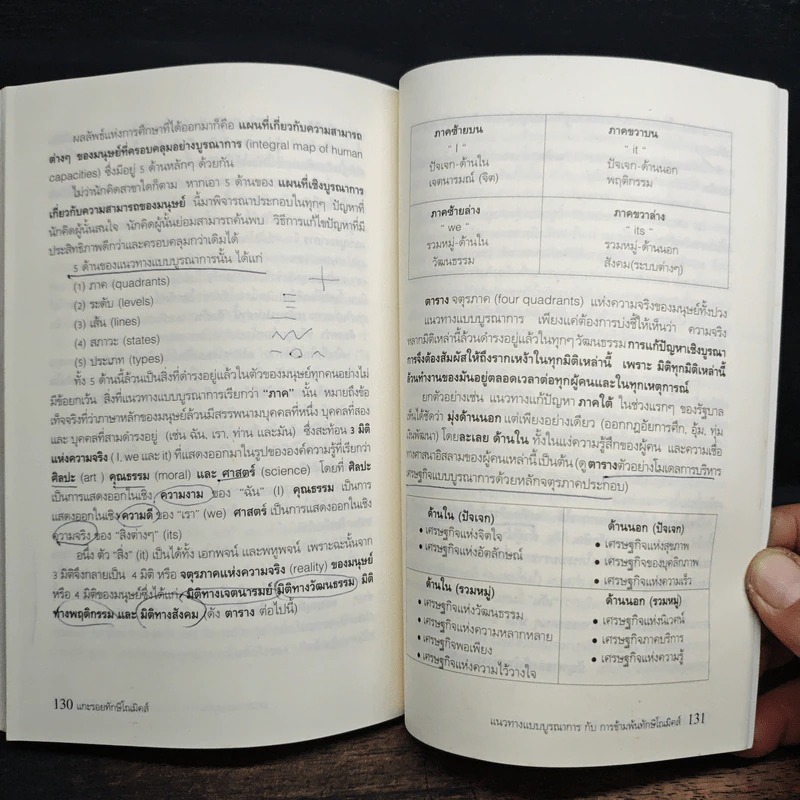 ผลลัพธ์แห่งการศึกษาที่ได้ออกมาก็คือ แผนที่เกี่ยวกับความสามารถ
ต่างๆ ของมนุษย์ที่ครอบคลุมอย่างบูรณาการ (integral map of human
capacities) ซึ่งมีอยู่ 5 ด้านหลักๆ ด้วยกัน
ไม่ว่านักคิดสาขาใดก็ตาม หากเอา 5 ด้านของ แผนที่เชิงบูรณาการ
เกี่ยวกับความสามารถของมนุษย์ นี้มาพิจารณาประกอบในทุกๆ ปัญหาที่
นักคิดผู้นั้นสนใจ นักคิดผู้นั้นย่อมสามารถค้นพบ วิธีการแก้ไขปัญหาที่มี
ประสิทธิภาพดีกว่าและครอบคลุมกว่าเดิมได้
5 ด้านของแนวทางแบบบูรณาการนั้น ได้แก่
(1) ภาค (quadrants)
(2) ระดับ (levels)
(3) เส้น (lines)
(4) สภาวะ (states)
(5) ประเภท (types)
ทั้ง 5 ด้านนี้ล้วนเป็นสิ่งที่ดำรงอยู่แล้วในตัวของมนุษย์ทุกคนอย่างไม่
มีข้อยกเว้น สิ่งที่แนวทางแบบบูรณาการเรียกว่า "ภาค" นั้น หมายถึงข้อ
เท็จจริงที่ว่าภาษาหลักของมนุษย์ล้วนมีสรรพนามบุคคลที่หนึ่ง บุคคลที่สอง
และ บุคคลที่สามดำรงอยู่ (เช่น ฉัน, เรา, ท่าน และมัน) ซึ่งสะท้อน 3 มิติ
แห่งความจริง ( I, we และ it) ที่แสดงออกมาในรูปขององค์ความรู้ที่เรียกว่า
ศิลปะ (art ) คุณธรรม (moral) และ ศาสตร์ (science) โดยที่ ศิลปะ
เป็นการแสดงออกในเชิง ความงาม ของ "ฉัน" (I) คุณธรรม เป็นการ
แสดงออกในเชิง ความดี ของ "เรา" (we) ศาสตร์ เป็นการแสดงออกในเชิง
ความจริง ของ "สิ่งต่างๆ" (its)
อนึ่ง ตัว "สิ่ง" (it) เป็นได้ทั้ง เอกพจน์ และพหูพจน์ เพราะฉะนั้นจาก
3 มิติจึงกลายเป็น 4 มิติ หรือ จตุรภาคแห่งความจริง (reality) ของมนุษย์
หรือ 4 มิติของมนุษย์ซึ่งได้แก่ มิติทางเจตนารมย์ มิติทางวัฒนธรรม มิติ
ทางพฤติกรรม และ มิติทางสังคม (ดัง ตาราง ต่อไปนี้)
130 แกะรอยทักษิโณมิคส์
ภาคซ้ายบน
" I "
ปัจเจก-ด้านใน
เจตนารมณ์ (จิต)
ภาคขวาบน
" it "
ปัจเจก-ด้านนอก
พฤติกรรม
ภาคซ้ายล่าง
" we "
รวมหมู่-ด้านใน
วัฒนธรรม
ภาคขวาล่าง
" its "
รวมหมู่-ด้านนอก
สังคม(ระบบต่างๆ)
ตาราง จตุรภาค (four quadrants) แห่งความจริงของมนุษย์ทั้งปวง
แนวทางแบบบูรณาการ เพียงแค่ต้องการบ่งชี้ให้เห็นว่า ความจริง
หลากมิติเหล่านี้ล้วนดำรงอยู่แล้วในทุกๆ วัฒนธรรม การแก้ปัญหาเชิงบูรณา
การจึงต้องสัมผัสให้ถึงรากเหง้าในทุกมิติเหล่านี้ เพราะ มิติทุกมิติเหล่านี้
ล้วนทำงานของมันอยู่ตลอดเวลาต่อทุกผู้คนและในทุกเหตุการณ์
ยกตัวอย่างเช่น แนวทางแก้ปัญหา ภาคใต้ ในช่วงแรกๆ ของรัฐบาล
เห็นได้ชัดว่า มุ่งด้านนอก แต่เพียงอย่างเดียว (ออกกฎอัยการศึก, อุ้ม, ทุ่ม
งบพัฒนา) โดยละเลย ด้านใน ทั้งในแง่ความรู้สึกของผู้คน และความเชื่อ
ทางศาสนาอิสลามของผู้คนเหล่านี้เป็นต้น (ดู ตารางตัวอย่างโมเดลการบริหาร
เศรษฐกิจแบบบูรณาการด้วยหลักจตุรภาคประกอบ)
ด้านใน (ปัจเจก)
• เศรษฐกิจแห่งจิตใจ
• เศรษฐกิจแห่งอัตลักษณ์
ด้านนอก (ปัจเจก)
• เศรษฐกิจแห่งสุขภาพ
• เศรษฐกิจของบุคลิกภาพ
• เศรษฐกิจแห่งความเร็ว
ด้านใน (รวมหมู่)
• เศรษฐกิจแห่งวัฒนธรรม
• เศรษฐกิจแห่งความหลากหลาย
• เศรษฐกิจพอเพียง
• เศรษฐกิจแห่งความไว้วางใจ
ด้านนอก (รวมหมู่)
• เศรษฐกิจแห่งนิเวศน์
• เศรษฐกิจภาคบริการ
• เศรษฐกิจแห่งความรู้
แนวทางแบบบูรณาการ กับ การข้ามพ้นทักษิโณมิคส์ 131